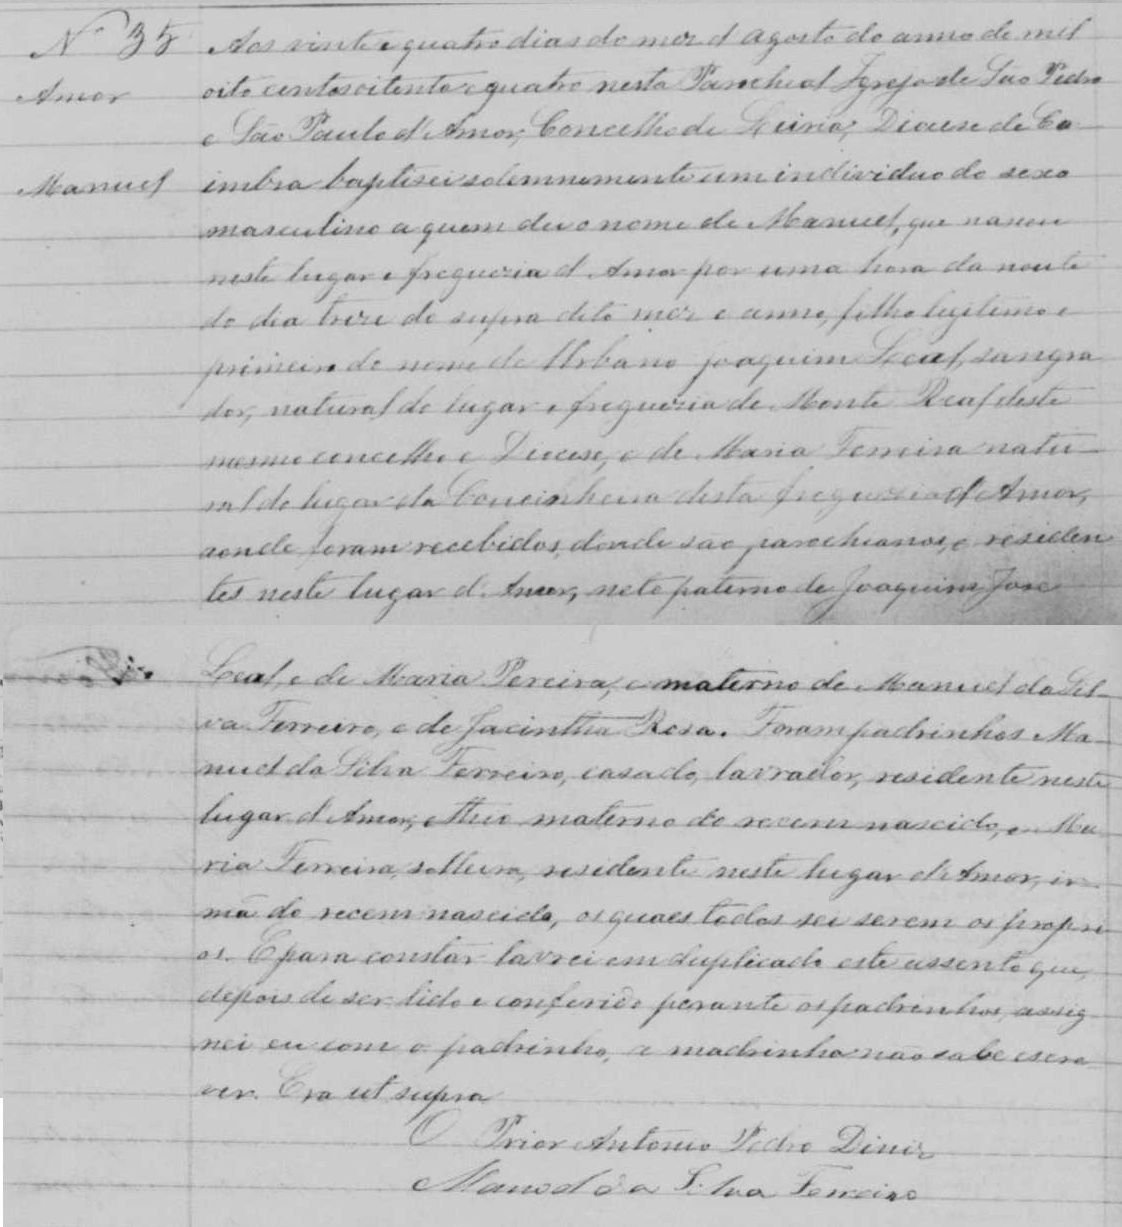 Nº 35
Amor
Manuel
Aos vinte e quatro dias do mez d'Agosto do anno de mil
oito centos oitenta e quatro nesta Parochial Igreja de São Pedro
e São Paulo d'Amor, Concelho de Leiria, Diocese de Co-
imbra baptisei solemnemente um individuo do sexo
masculino a quem dei o nome de Manuel, que nasceu
neste lugar e freguezia d'Amor por uma hora da noute
do dia treze do supra dito mez e anno, filho legitimo e
primeiro do nome de Urbano Joaquim Leal, sangra
dor, natural do lugar e freguezia de Monte Real deste
mesmo concelho e Diocese, e de Maria Ferreira natu-
ral do lugar da Coucinheira desta freguezia d'Amor,
aonde foram recebidos, donde são parochianos, e residen
tes neste lugar d'Amor, neto paterno de Joaquim José
Leal, e de Maria Pereira, e materno de Manuel da Sil-
va Ferreiro, e de Jacintha Rosa. Foram padrinhos Ma-
nuel da Silva Ferreiro, casado, lavrador, residente neste
lugar d'Amor, e thio materno do recem nascido, e Ma
ria Ferreira, solteira, residente neste lugar d'Amor, ir-
mã do recem nascido, os quaes todos sei serem os propri
os. E para constar lavrei em duplicado este assento que,
depois de ser lido e conferido perante os padrinhos, assig
nei eu com o padrinho, a madrinha não sabe escre
ver. Era ut supra
O Prior Antonio Pedro Diniz
Manoel da Silva Ferreiro